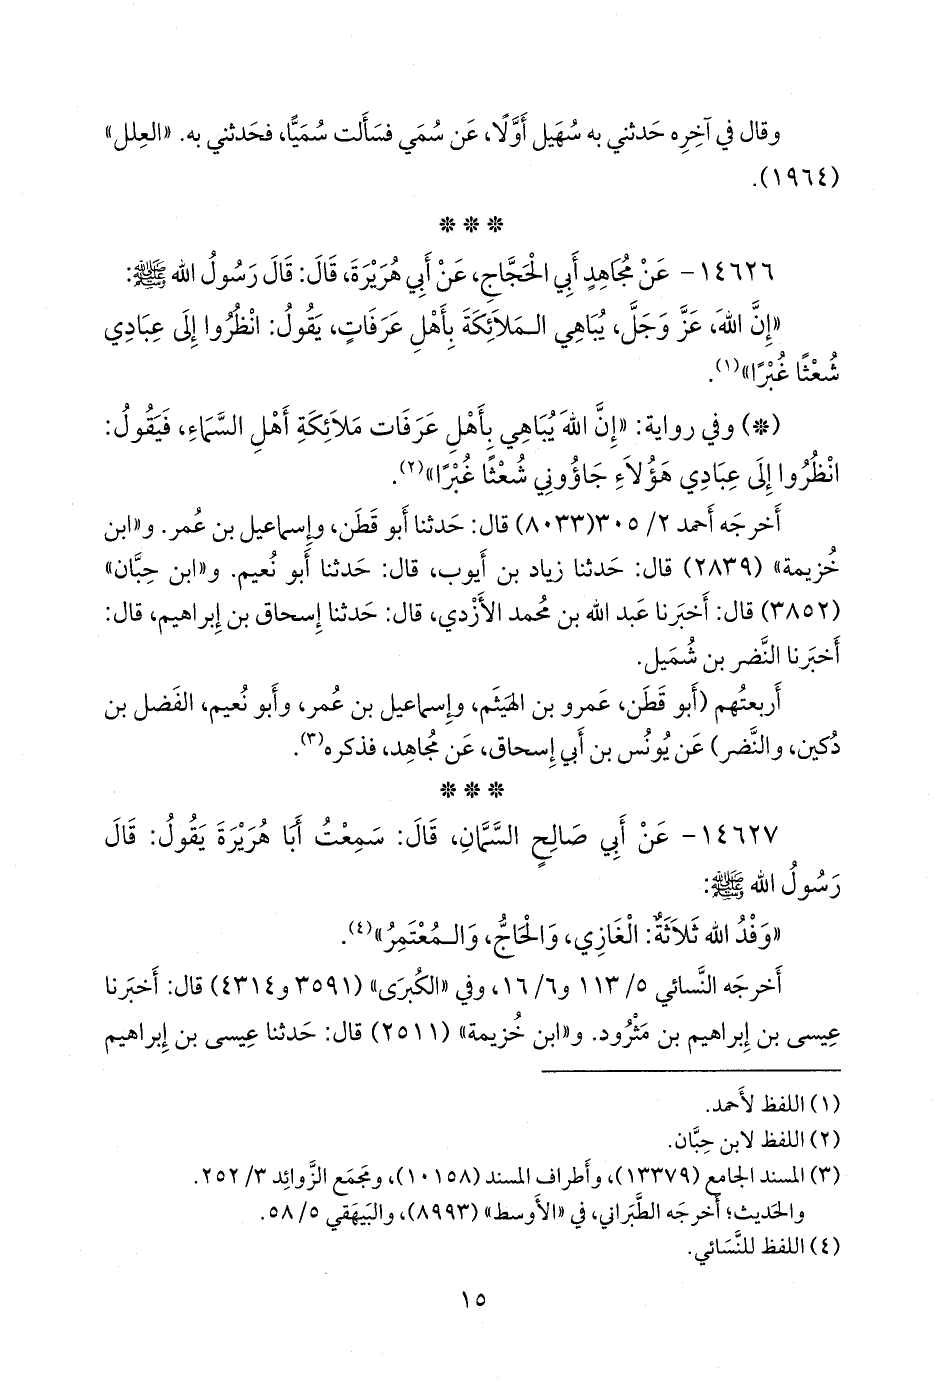 وقال في آخِرِه حَدثني به سُهَيل أَوَّلًا، عَن سُمَي فسَأَلت سُمَيًّا، فحَدثني به. «العِلل»
(١٩٦٤).
* * *
١٤٦٢٦- عَنْ مُجَاهِدٍ أَبِي الْحَجَّاجِ، عَنْ أَبِي هُرَيْرَةَ، قَالَ: قَالَ رَسُولُ الله ﷺ:
«إِنَّ اللهَ، عَزَّ وَجَلَّ، يُبَاهِي الـمَلاَئِكَةَ بِأَهْلِ عَرَفَاتٍ، يَقُولُ: انْظُرُوا إِلَى عِبَادِي
شُعْثًا غُبْرًا»(١).
(*) وفي رواية: «إِنَّ اللهَ يُبَاهِي بِأَهْلِ عَرَفَات مَلاَئِكَةِ أَهْلِ السَّمَاءِ، فَيَقُولُ:
انْظُرُوا إِلَى عِبَادِي هَؤُلاَءِ جَاؤُونِي شُعْثًا غُبْرًا»(٢).
أَخرجَه أَحمد ٢/ ٣٠٥(٨٠٣٣) قال: حَدثنا أَبو قَطَن، وإِسماعيل بن عُمر. و«ابن
خُزيمة» (٢٨٣٩) قال: حَدثنا زياد بن أَيوب، قال: حَدثنا أَبو نُعيم. و«ابن حِبَّان»
(٣٨٥٢) قال: أَخبَرنا عَبد الله بن مُحمد الأَزْدي، قال: حَدثنا إِسحاق بن إِبراهيم، قال:
أَخبَرنا النَّضر بن شُمَيل.
أَربعتُهم (أَبو قَطَن، عَمرو بن الهَيثَم، وإِسماعيل بن عُمر، وأَبو نُعيم، الفَضل بن
دُكين، والنَّضر) عَن يُونُس بن أَبي إِسحاق، عَن مُجاهد، فذكره(٣).
* * *
١٤٦٢٧- عَنْ أَبِي صَالِحٍ السَّمَّانِ، قَالَ: سَمِعْتُ أَبَا هُرَيْرَةَ يَقُولُ: قَالَ
رَسُولُ الله ﷺ:
«وَفْدُ الله ثَلاَثَةٌ: الْغَازِي، وَالْحَاجُّ، وَالـمُعْتَمِرُ»(٤).
أَخرجَه النَّسائي ٥/ ١١٣ و٦/ ١٦، وفي «الكُبرَى» (٣٥٩١ و٤٣١٤) قال: أَخبَرنا
عِيسى بن إِبراهيم بن مَثْرُود. و«ابن خُزيمة» (٢٥١١) قال: حَدثنا عِيسى بن إِبراهيم
(١) اللفظ لأَحمد.
(٢) اللفظ لابن حِبَّان.
(٣) المسند الجامع (١٣٣٧٩)، وأَطراف المسند (١٠١٥٨)، ومَجمَع الزَّوائِد ٣/ ٢٥٢.
والحَديث؛ أَخرجَه الطَّبَراني، في «الأَوسط» (٨٩٩٣)، والبَيهَقي ٥/ ٥٨.
(٤) اللفظ للنَّسَائي.
١٥